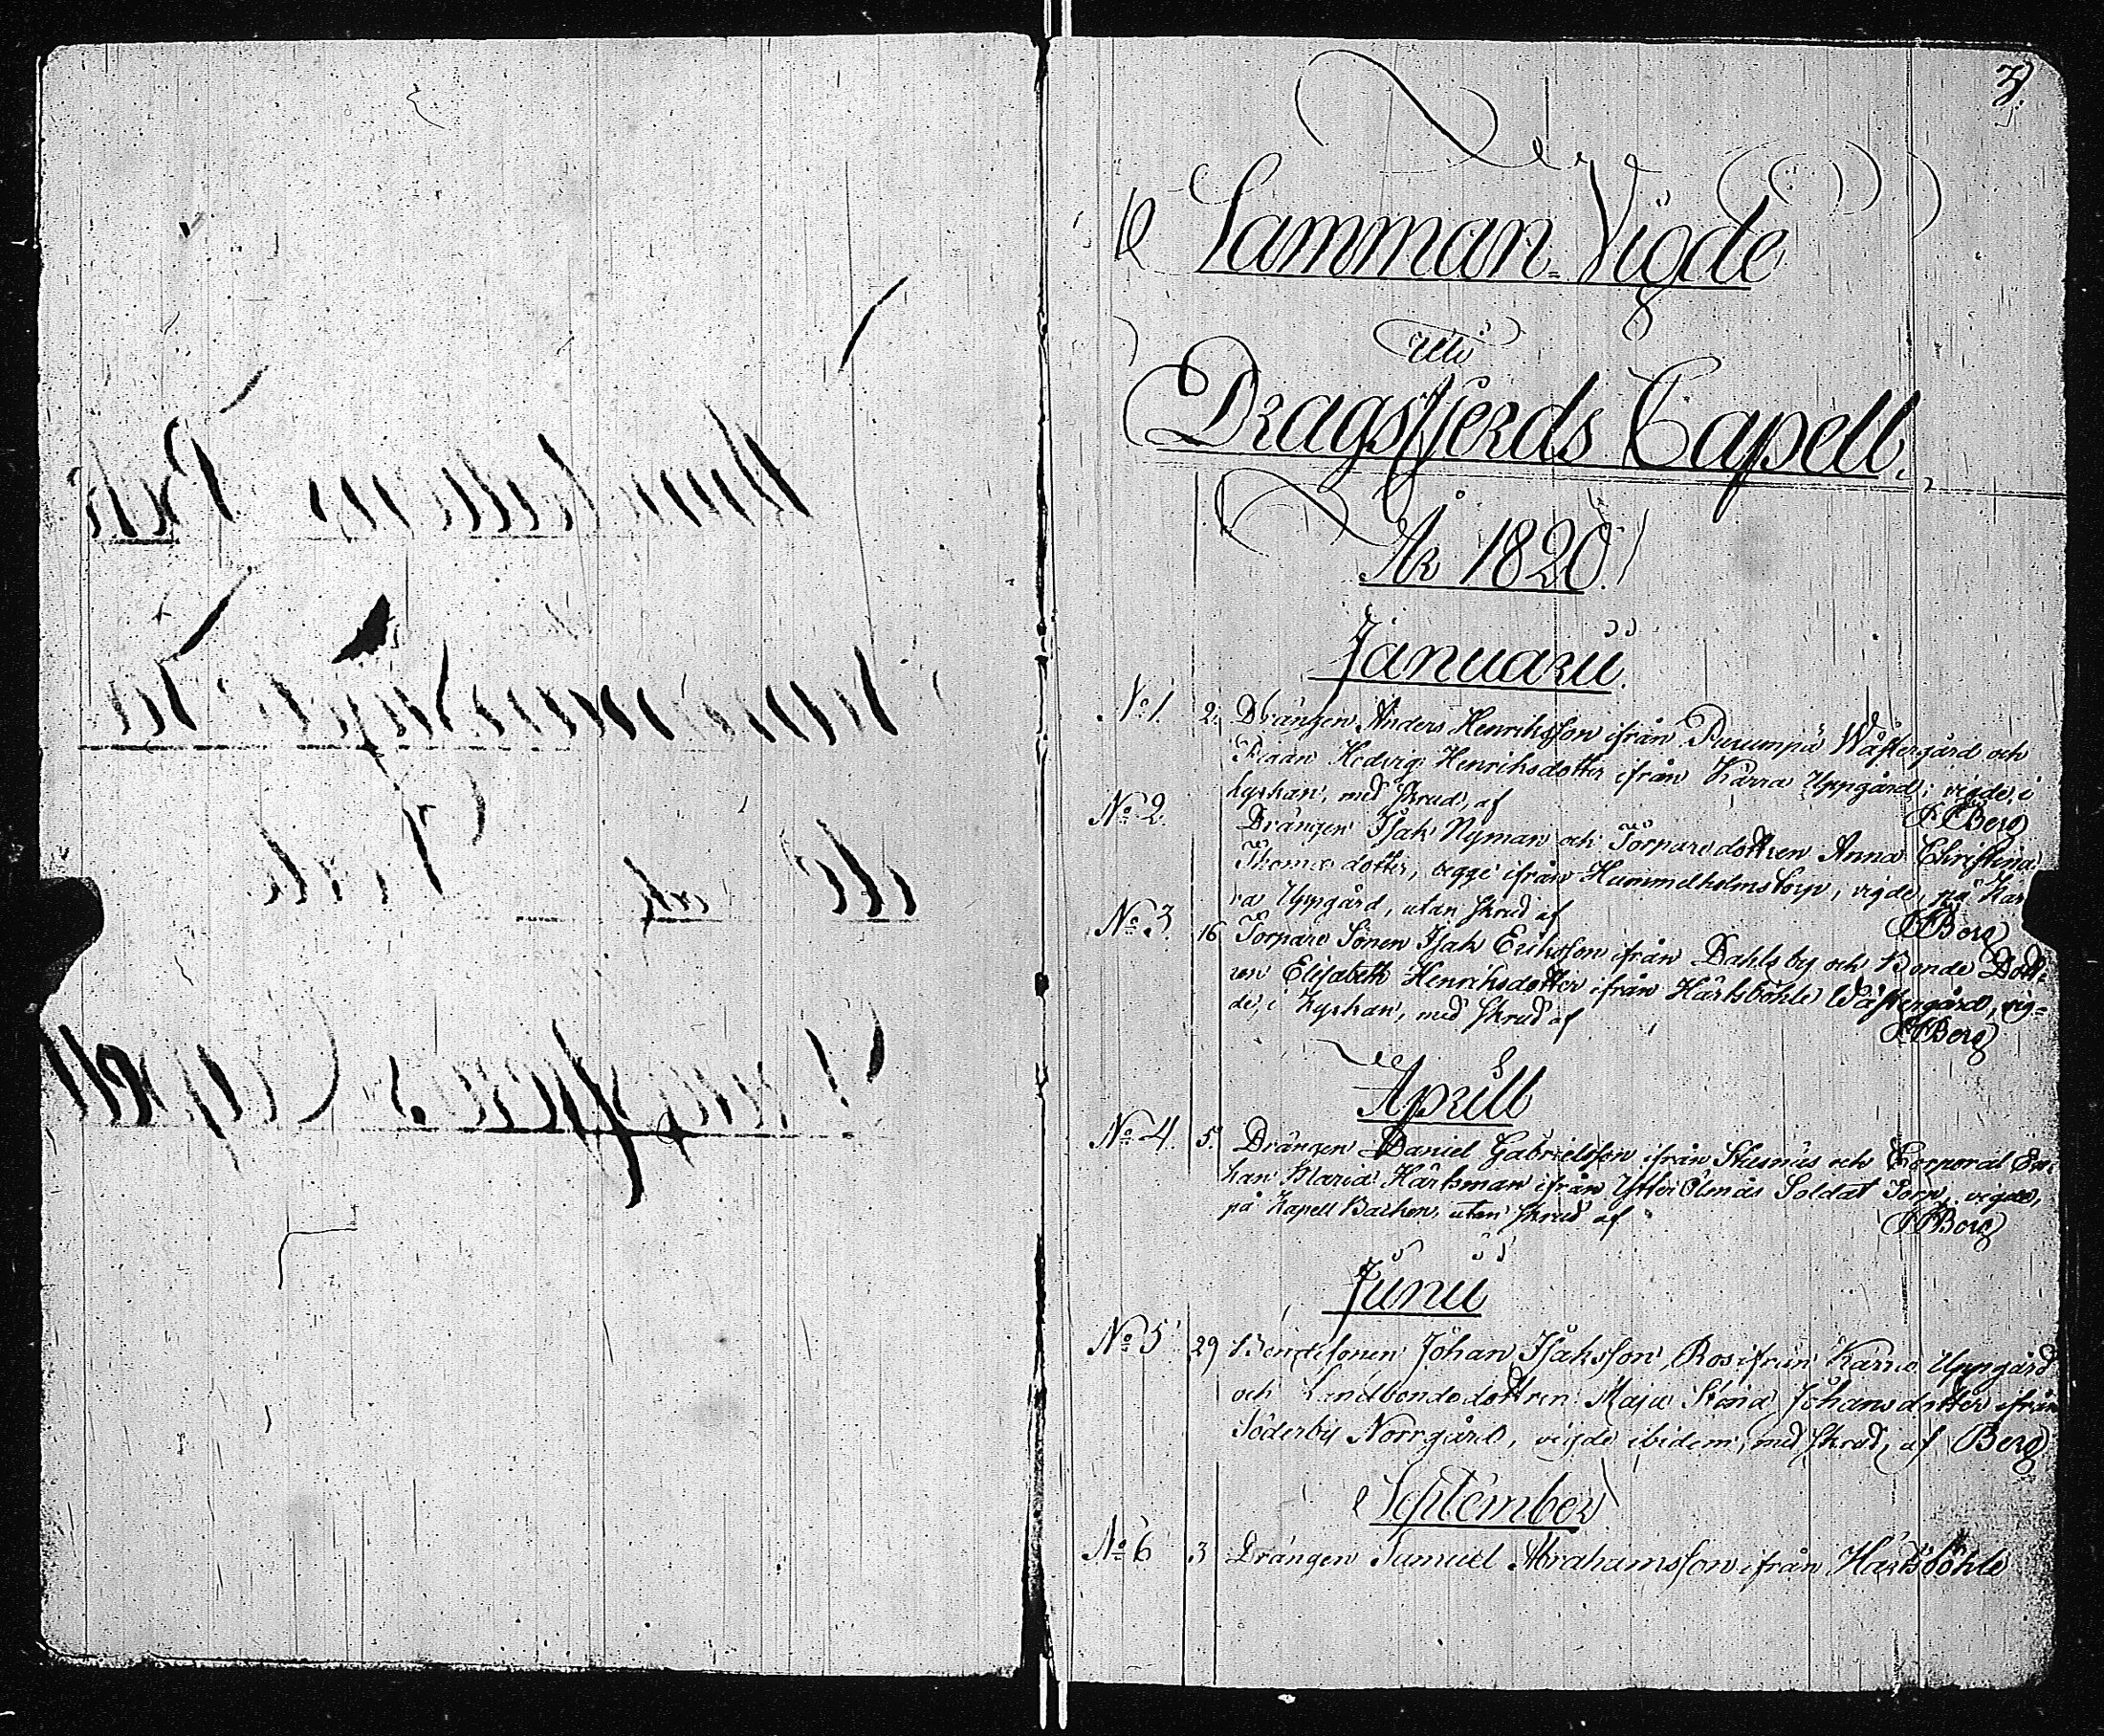 Samman-Vigde
uti
Dragsfjerds Capell.
År 1820.
Januarii.
No 1. 2. Drängen Anders Henriksson ifrån Purumpä Wästergård och
Pigan Hedvig Henriksdotter ifrån Kärra Uppgård; vigde, i
kyrkan, med skrud, af Berg
No 2. Drängen Isak Nyman och Torparedottren Anna Christina
Thomasdotter, begge ifrån Hummelholms torp, vigde, på Kär
ra Uppgård, utan skrud af Berg
No 3. 16 Torpare Sonen Isak Eriksson ifrån Dahlsby och Bonde Dott-
ren Elisabeth Henriksdotter ifrån Härtsböhle Wästergård, vig=
de, i kyrkan, med skrud af Berg
Aprill
No 4. 5. Drängen Daniel Gabrielsson ifrån Stusnäs och Corporal En-
kan Maria Hårtsman ifrån Ytter Ölmås Soldat Torp, vigde,
på Kapell Backen, utan skrud af Berg
Junii
No 5 29 Bondesonen Johan Isaksson Ros ifrån Kärra Uppgård
och Landbondedottren Maja Stena Johansdotter ifrån
Söderby Norrgård, vigde ibidem, med skrud, af Berg
September
No 6 3 Drängen Samuel Abrahamsson ifrån Härtsböhle